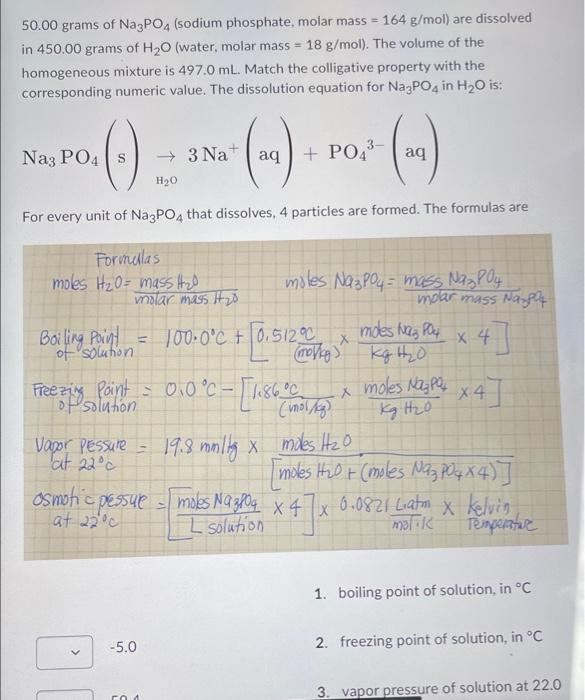 50.00 grams of Na3PO4 (sodium phosphate, molar mass = 164 g/mol) are dissolved
in 450.00 grams of H2O (water, molar mass = 18 g/mol). The volume of the
homogeneous mixture is 497.0 mL. Match the colligative property with the
corresponding numeric value. The dissolution equation for Na3PO4 in H2O is:
Na3 PO4 (s) → H2O 3 Na+ (aq) + PO4 3− (aq)
For every unit of Na3PO4 that dissolves, 4 particles are formed. The formulas are
Formulas
moles H2O = mass H2O / molar mass H2O   moles Na3PO4 = mass Na3PO4 / molar mass Na3PO4
Boiling Point of solution = 100.0°C + [0.512 °C / (mol/kg) × moles Na3PO4 / kg H2O × 4]
Freezing Point of solution = 0.0 °C − [1.86 °C / (mol/kg) × moles Na3PO4 / kg H2O × 4]
Vapor Pessure at 22°C = 19.8 mmHg × moles H2O / [moles H2O + (moles Na3PO4 × 4)]
Osmotic pessure at 22°C = [moles Na3PO4 / L solution × 4] × 0.0821 L·atm / mol·K × Kelvin Temperature
1. boiling point of solution, in °C
-5.0
2. freezing point of solution, in °C
3. vapor pressure of solution at 22.0